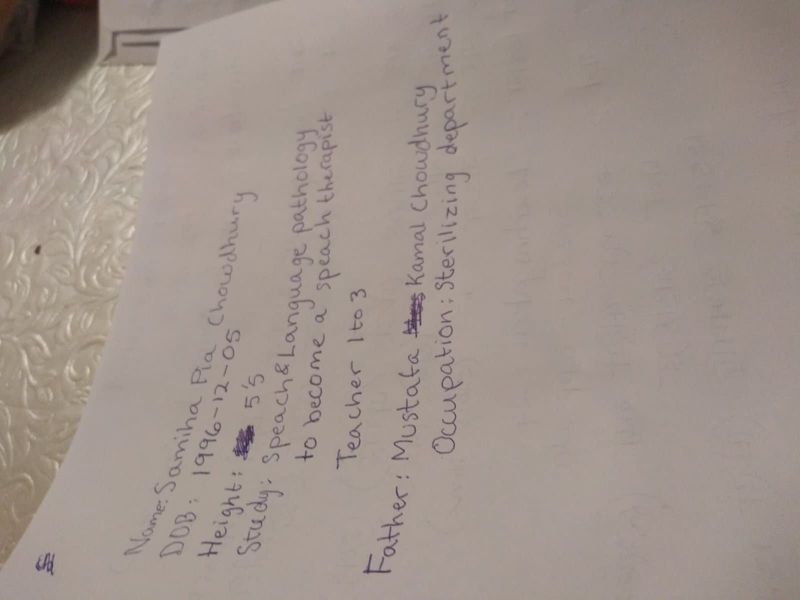 Name: Samiha Pia Chowdhury
DOB: 1996-12-05
Height: 5'5
Study: Speach & Language pathology
to become a speach therapist
Teacher 1 to 3
Father: Mustafa Kamal Chowdhury
Occupation: Sterilizing department